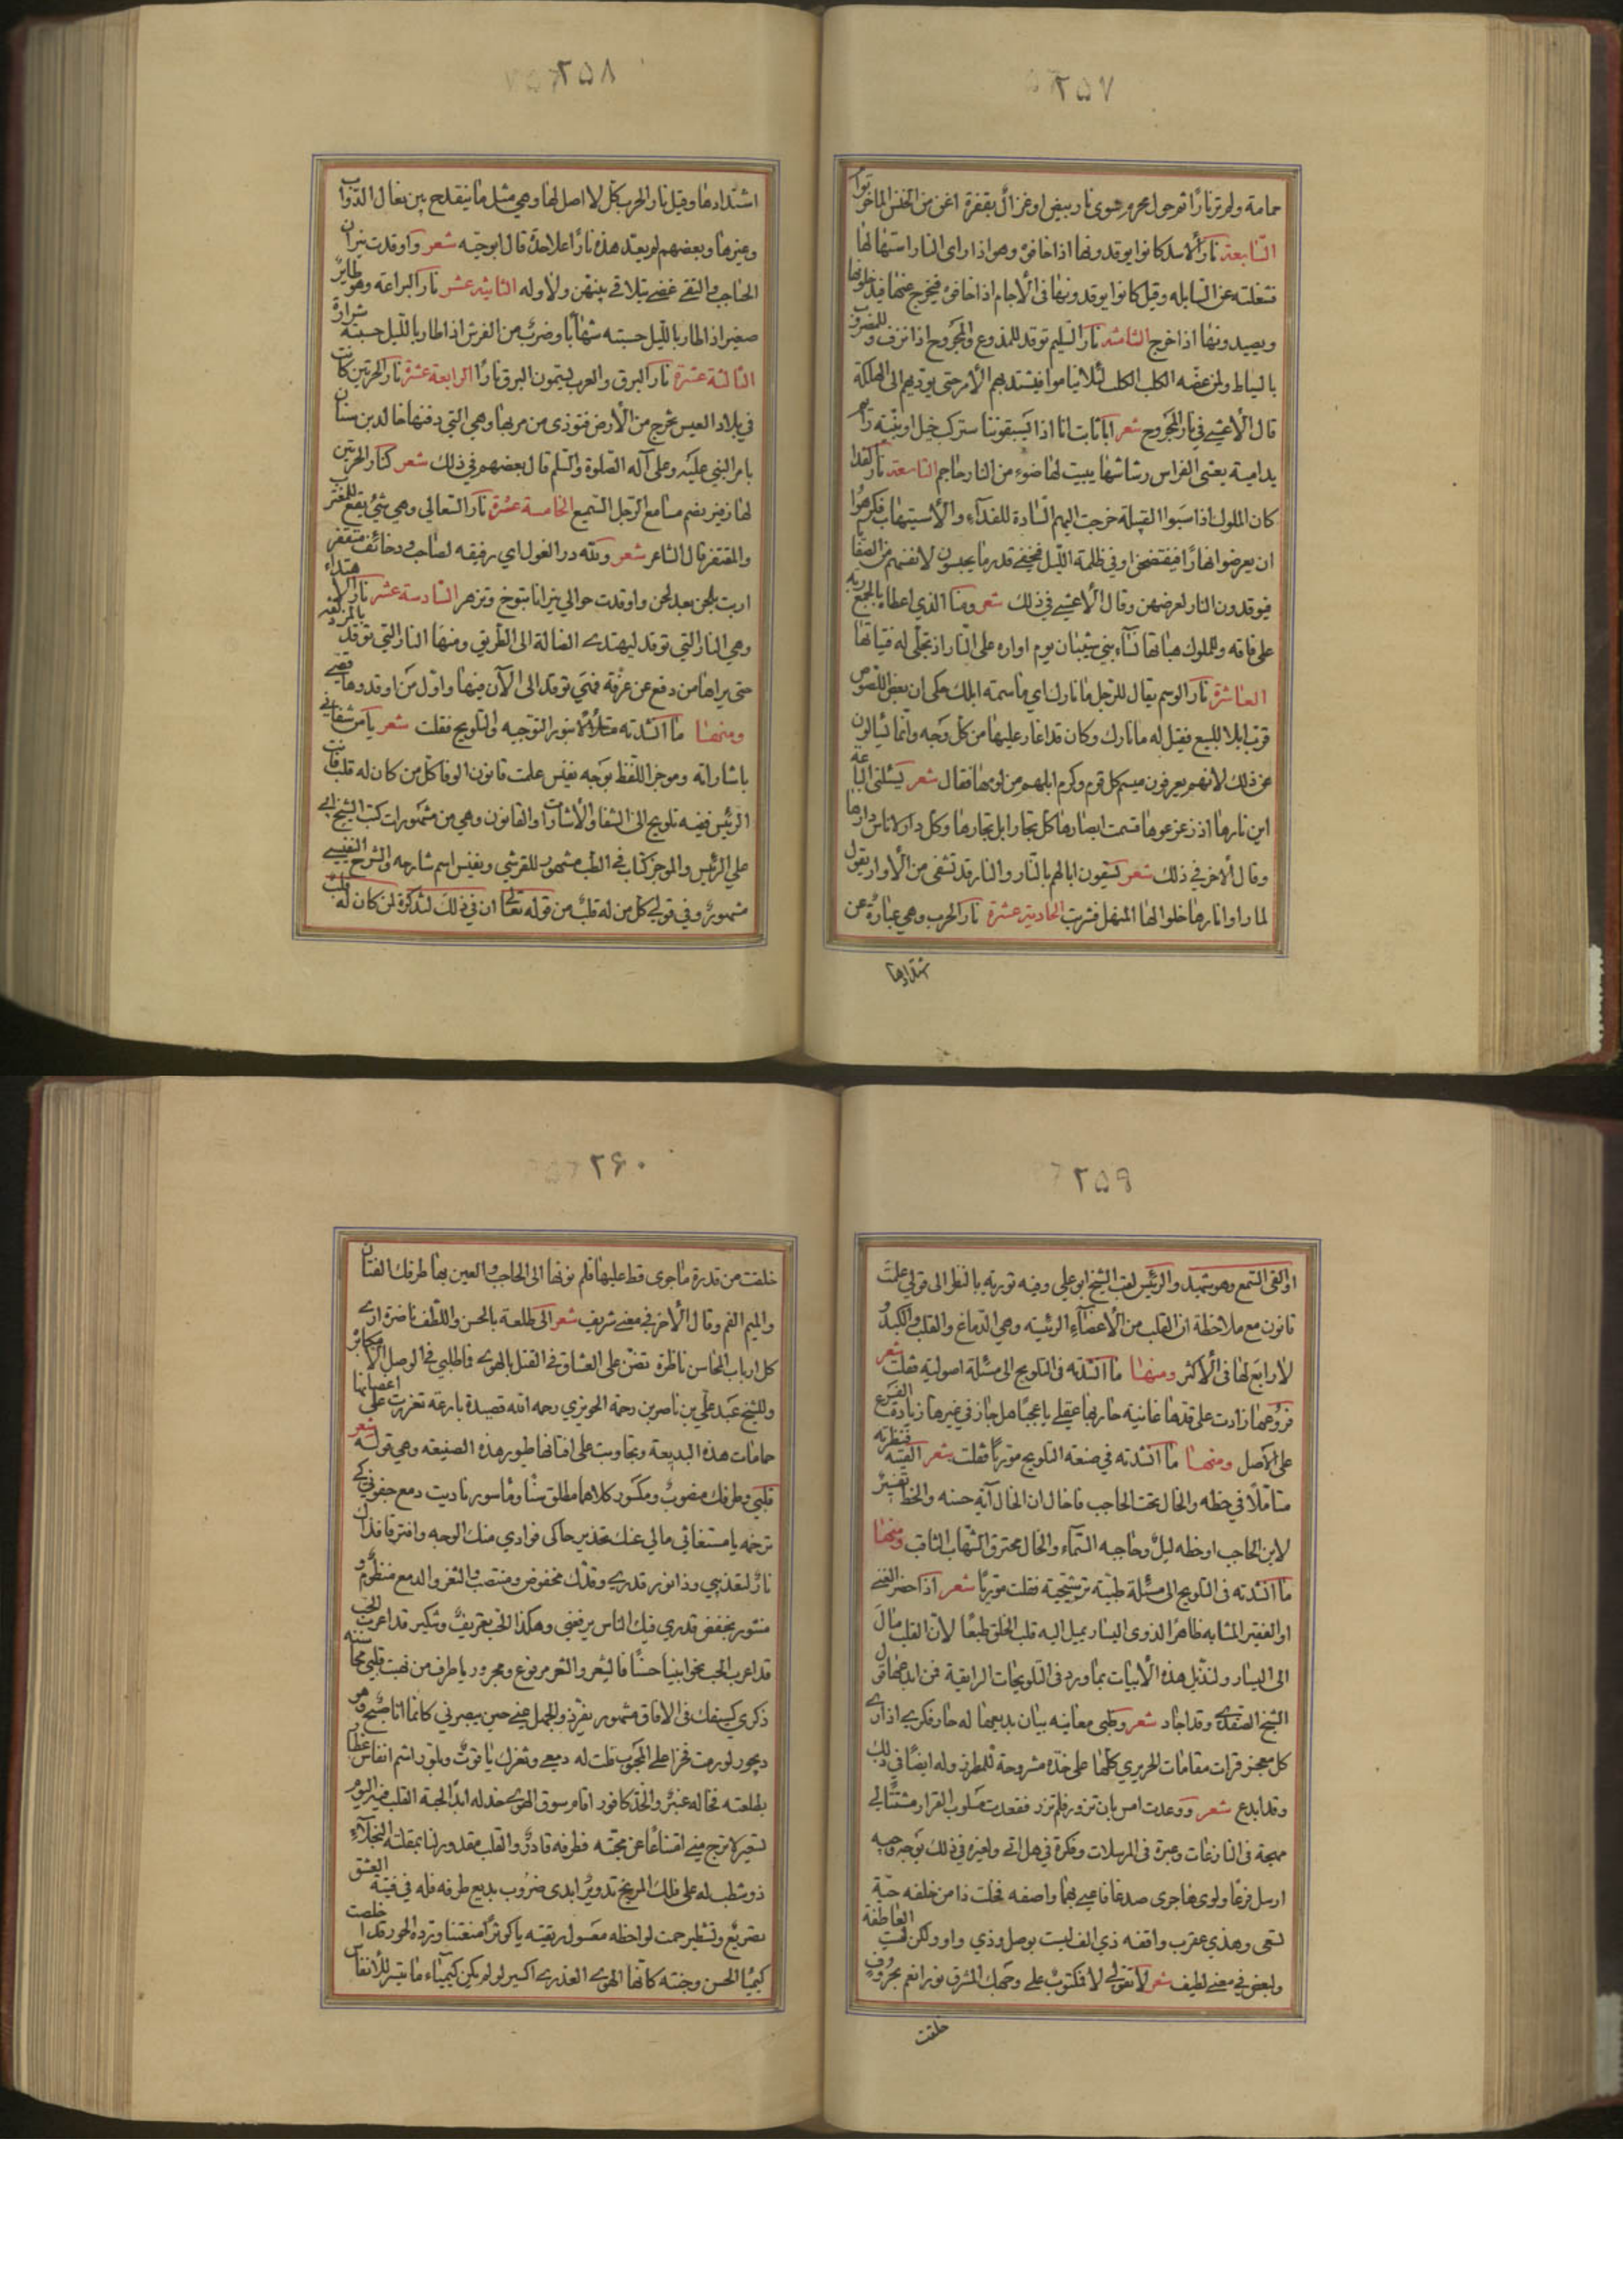 ٢٥٧
حمامة ولم تر نارا ثم حول محرم سوى نار بيض او غزال بقفرة اغن من الخنس المناخر توأم
السابعة نار الاسد كانوا يوقدونها اذا خافوه وهو اذا راى النار استهالها
فشغلته عن السابلة وقيل كانوا يوقدونها فى الآجام اذا خافوه فيخرج عنها
ويصيدونها اذا خرج الثامنة نار السليم توقد للملدوغ والمجروح اذا نزف وللمضروب
بالسياط ولمن عضه الكلب الكلب لئلا يناموا فيشتد بهم الأمر حتى يؤديهم الى الهلكة
قال الأعشى فى نار المجروح شعر ابا ثابت انا اذا يسبقوننا سنركب خيل او ينبه نائم
بدامية يعشى الفراش رشاشها يبيت لها ضوء من النار جاحم التاسعة نار الفداء
كان الملوك اذا سبوا القبيلة خرجت اليهم السادة للفداء والأستيهاب فكرهوا
ان يعرضوا نهارا فيفتضحن او فى ظلمة الليل فيخفى قدر ما يحبسون لانفسهم من الصفايا
فيوقدون النار لعرضهن وقال الأعشى فى ذلك شعر ومنا الذي اعطاه بالجمع ربه
على فاقة وللملوك هباتها نساء بني شيبان يوم اواره على النار اذ تجلى له فتياتها
العاشرة نار الوسم يقال للرجل ما نارك اي ما سمة ابلك حكى ان بعض اللصوص
قرب ابلا للبيع فقيل له ما نارك وكان قد اغار عليها من كل وجه وانما يسألون
عن ذلك لانهم يعرفون ميسم كل قوم وكرم ابلهم من لومها فقال شعر يسئلنى الباعة
اين نارها اذ زعزعوها فسمت ابصارها كل نجار ابل نجارها وكل دار لاناس دارها
وقال الآخر في ذلك شعر يسقون ابالهم بالنار والنار قد تشفى من الأوار يقول
لما راوا نارها خلوا لها المنهل فشربت الحادية عشرة نار الحرب وهى عبارة عن
شتدادها
٢٥٨
اشتدادها وقيل نار الحرب مثل لا اصل لها وهي مثل ما ينقدح بين نعال الدواب
وغيرها وبعضهم لم يعد هذه نارا علاحدة قال ابو حية شعر واوقدت نيران
الحباحب والتقى غضى يتلاقى بينهن ولاوله الثانية عشر نار البراعة وهو طاير
صغير اذا طار بالليل حسبته شهابا وضرب من الفرش اذا طار بالليل حسبته شرارة
الثالثة عشرة نار البرق والعرب يسمون البرق نارا الرابعة عشرة نار الحرتين كانت
في بلاد العبس تخرج من الأرض فتوذى من مر بها وهي التي دفنها خالد بن سنان
بامر النبي عليه وعلى آله الصلوة والسلم قال بعضهم في ذلك شعر كنار الحرتين
لها زفير يصم مسامع الرجل السميع الخامسة عشرة نار السعالي وهي شئ يقع للمتغرب
والمتقفر قال الشاعر شعر ولله در الغول اي رفيقة لصاحب دو خائف متقفر
ارنت بلحن بعد لحن واوقدت حوالي نيرانا تبوخ وتزهر السادسة عشر نار الاهتداء
وهي النار التي توقد ليهتدى الضالة الى الطريق ومنها النار التي توقد بالمزدلفة
حتى يراها من دفع عن عرفة فهي توقد الى الآن منها واول من اوقدوها قصى
ومنها ما انشدته متلألأ بنور التوجيه والتلويح فقلت شعر يا من شفاني
باشاراته وموجز اللفظ بوجه نفيس علمت قانون الوفا كل من كان له قلب فانت
الرئيس ففيه تلويح الى الشفا والأشارات والقانون وهي من مشهورات كتب الشيخ ابى
علي الرئيس والموجز كتاب فى الطب مشهور للقرشي ونفيس اسم شارحه والشرح النفيسى
مشهور وفي قولي كل من له قلب من قوله تعالى ان في ذلك لتذكرة لمن كان له قلب
٢٥٩
او القى السمع وهو شهيد والرئيس لقب الشيخ ابو علي وفيه تورية بالنظر الى قولي علمت
قانون مع ملاحظة ان القلب من الأعضاء الرئيسة وهي الدماغ والقلب والكبد
لا رابع لها فى الأكثر ومنها ما انشدته فى التلويح الى مسئلة اصولية فقلت شعر
فروعها زادت على قدها غانية حار بها عقلي يا عجبا هل جاز في غيرها زيادة الفرع
على الأصل ومنها ما انشدته في صنعة التلويح موريا فقلت شعر الفيته فنظرته
متأملا في خطه والخال تحت الحاجب فاخال ان الخال آية حسنه والخط تفسير
لابن الحاجب او خطه ليل وحاجبه السماء والخال محترق الشهاب الثاقب ومنها
ما انشدته فى التلويح الى مسئلة طبية تشريحية فقلت موريا شعر اذا حضر الغنى
او الفقير المشابه ظاهرا لذوى اليسار يميل اليه قلب الخلق طبعا لأن القلب مال
الى اليسار ولنذيل هذه الأبيات بما ورد فى التلويحات الرايقة فمن ابدعها قول
الشيخ الصفدى وقد اجاد شعر وظبى معانيه بيان بديعها له حار فكرى اذ ارى
كل معجز قرات مقامات الحريري كلها على خده مشروحة للمطرزى وله ايضا في ذلك
وقد ابدع شعر ووعدت امس بان تزور فلم تزر فغدوت مسلوب القرار مشتتا لي
مهجة فى النازعات وعبرة فى المرسلات وفكرة في هل اتى ولغيره في ذلك بوجه وجيه
ارسل فرعا ولوى هاجرى صدغا فاعيى بهما واصفه فخلت ذا من خلفه حية
تسعى وهذي عقرب واقفه ذي الف ليست بوصل وذي واو ولكن ليست العاطفة
ولبعض في معنى لطيف شعر لا تقولى لا فمكتوب على وجهك المشرق نورا نعم بحروف
خلقت
٢۶٠
خلقت من قدرة ما جرى قط عليها قلم نونها الى الحاجب والعين بها طرفك الفتان
والميم الفم وقال الآخر في معنى شريف شعر الى طلعة بالحسن واللطف ناضرة ارى
كل ارباب المحاسن ناظرة تضن على العشاق فى القتل بالهوى فاطلبي فى الوصل الا مكابرة
وللشيخ عبد علي بن ناصر بن رحمة الحويزي رحمه الله قصيدة بارعة تغردت على اغصانها
حمامات هذه البديعة وتجاوبت على افنانها طيور هذه الصنيعة وهي قوله شعر
قلبي وطرفك منصوب ومكسور كلاهما مطلق منا وماسور ناديت دمع جفوني كى
ترخمه يا مستغاثي مالي عنك تحذير حاكى فوادي منك الوجه وافترقا فذاك
نار لتعذيبي وذا نور قدرى وقدك مخفوض ومنتصب والثغر والدمع منظوم و
منثور بخفض قدري فيك الناس يرفعني وهكذا الحب تعريف وتنكير قد اعرب الحب
قد اعرب الحب نحوا بيننا حسنا فالشعر والثغر مرفوع ومجرور يا طرف من نهبت قلبي محاسنه
ذكرى كسيفك فى الافاق مشهور تفرد والجمل فيى حين يبصرني كانما انا صبح وهو
ديجور لو رمت فخرا على المحبوب قلت له دمعى وثغرك ياقوت وبلور اشم انفاس عطار
بطلعته فخاله عنبر والخد كافور اقام سوق الهوى خد له ابدا لحبة القلب فيه اليوم
تسعير لا ترج منى امتناعا عن محبته فطرفه قادر والقلب مقدور لنا بمقلته النجلاء
ذو شطب له على فلك المريخ تدوير ابدى ضروب بديع طرفه فله في فتنة العشق
تصريع وتشطير حمت لواحظه معسول ريقته يا كوثرا منعتنا ورده الحور قد اخلصت
كيميا الحسن وجنته كانها الهوى العذرى اكسير لو لم يكن كيمياء ما تيسر للأنفاس